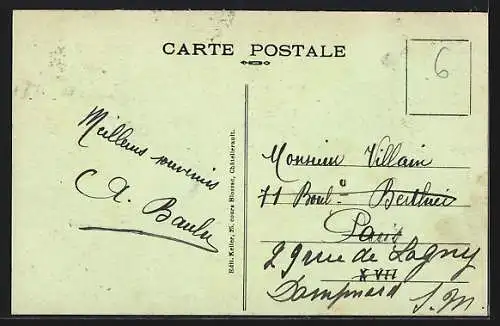 CARTE POSTALE
6
Meilleurs souvenirs
A.
Edit. Keller, 25, cours Blossac, Châtellerault.
Monsieur Villain
71 Boul. Berthier
Paris
29 rue de Lagny
XVII
Dampmard S. M.